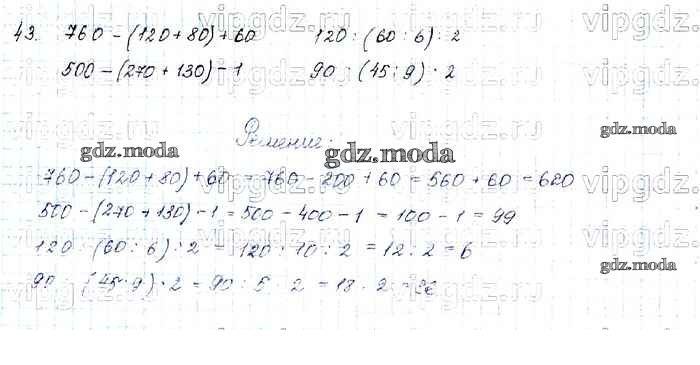 43. 760 - (120 + 80) + 60 120 : (60 : 6) : 2
500 - (270 + 130) - 1 90 : (45 : 9) · 2
Решение:
760 - (120 + 80) + 60 = 760 - 200 + 60 = 560 + 60 = 620
500 - (270 + 130) - 1 = 500 - 400 - 1 = 100 - 1 = 99
120 : (60 : 6) : 2 = 120 : 10 : 2 = 12 : 2 = 6
90 : (45 : 9) · 2 = 90 : 5 · 2 = 18 · 2 = 36
vipgdz.ru
gdz.moda
gdz.moda
gdz.moda
gdz.moda